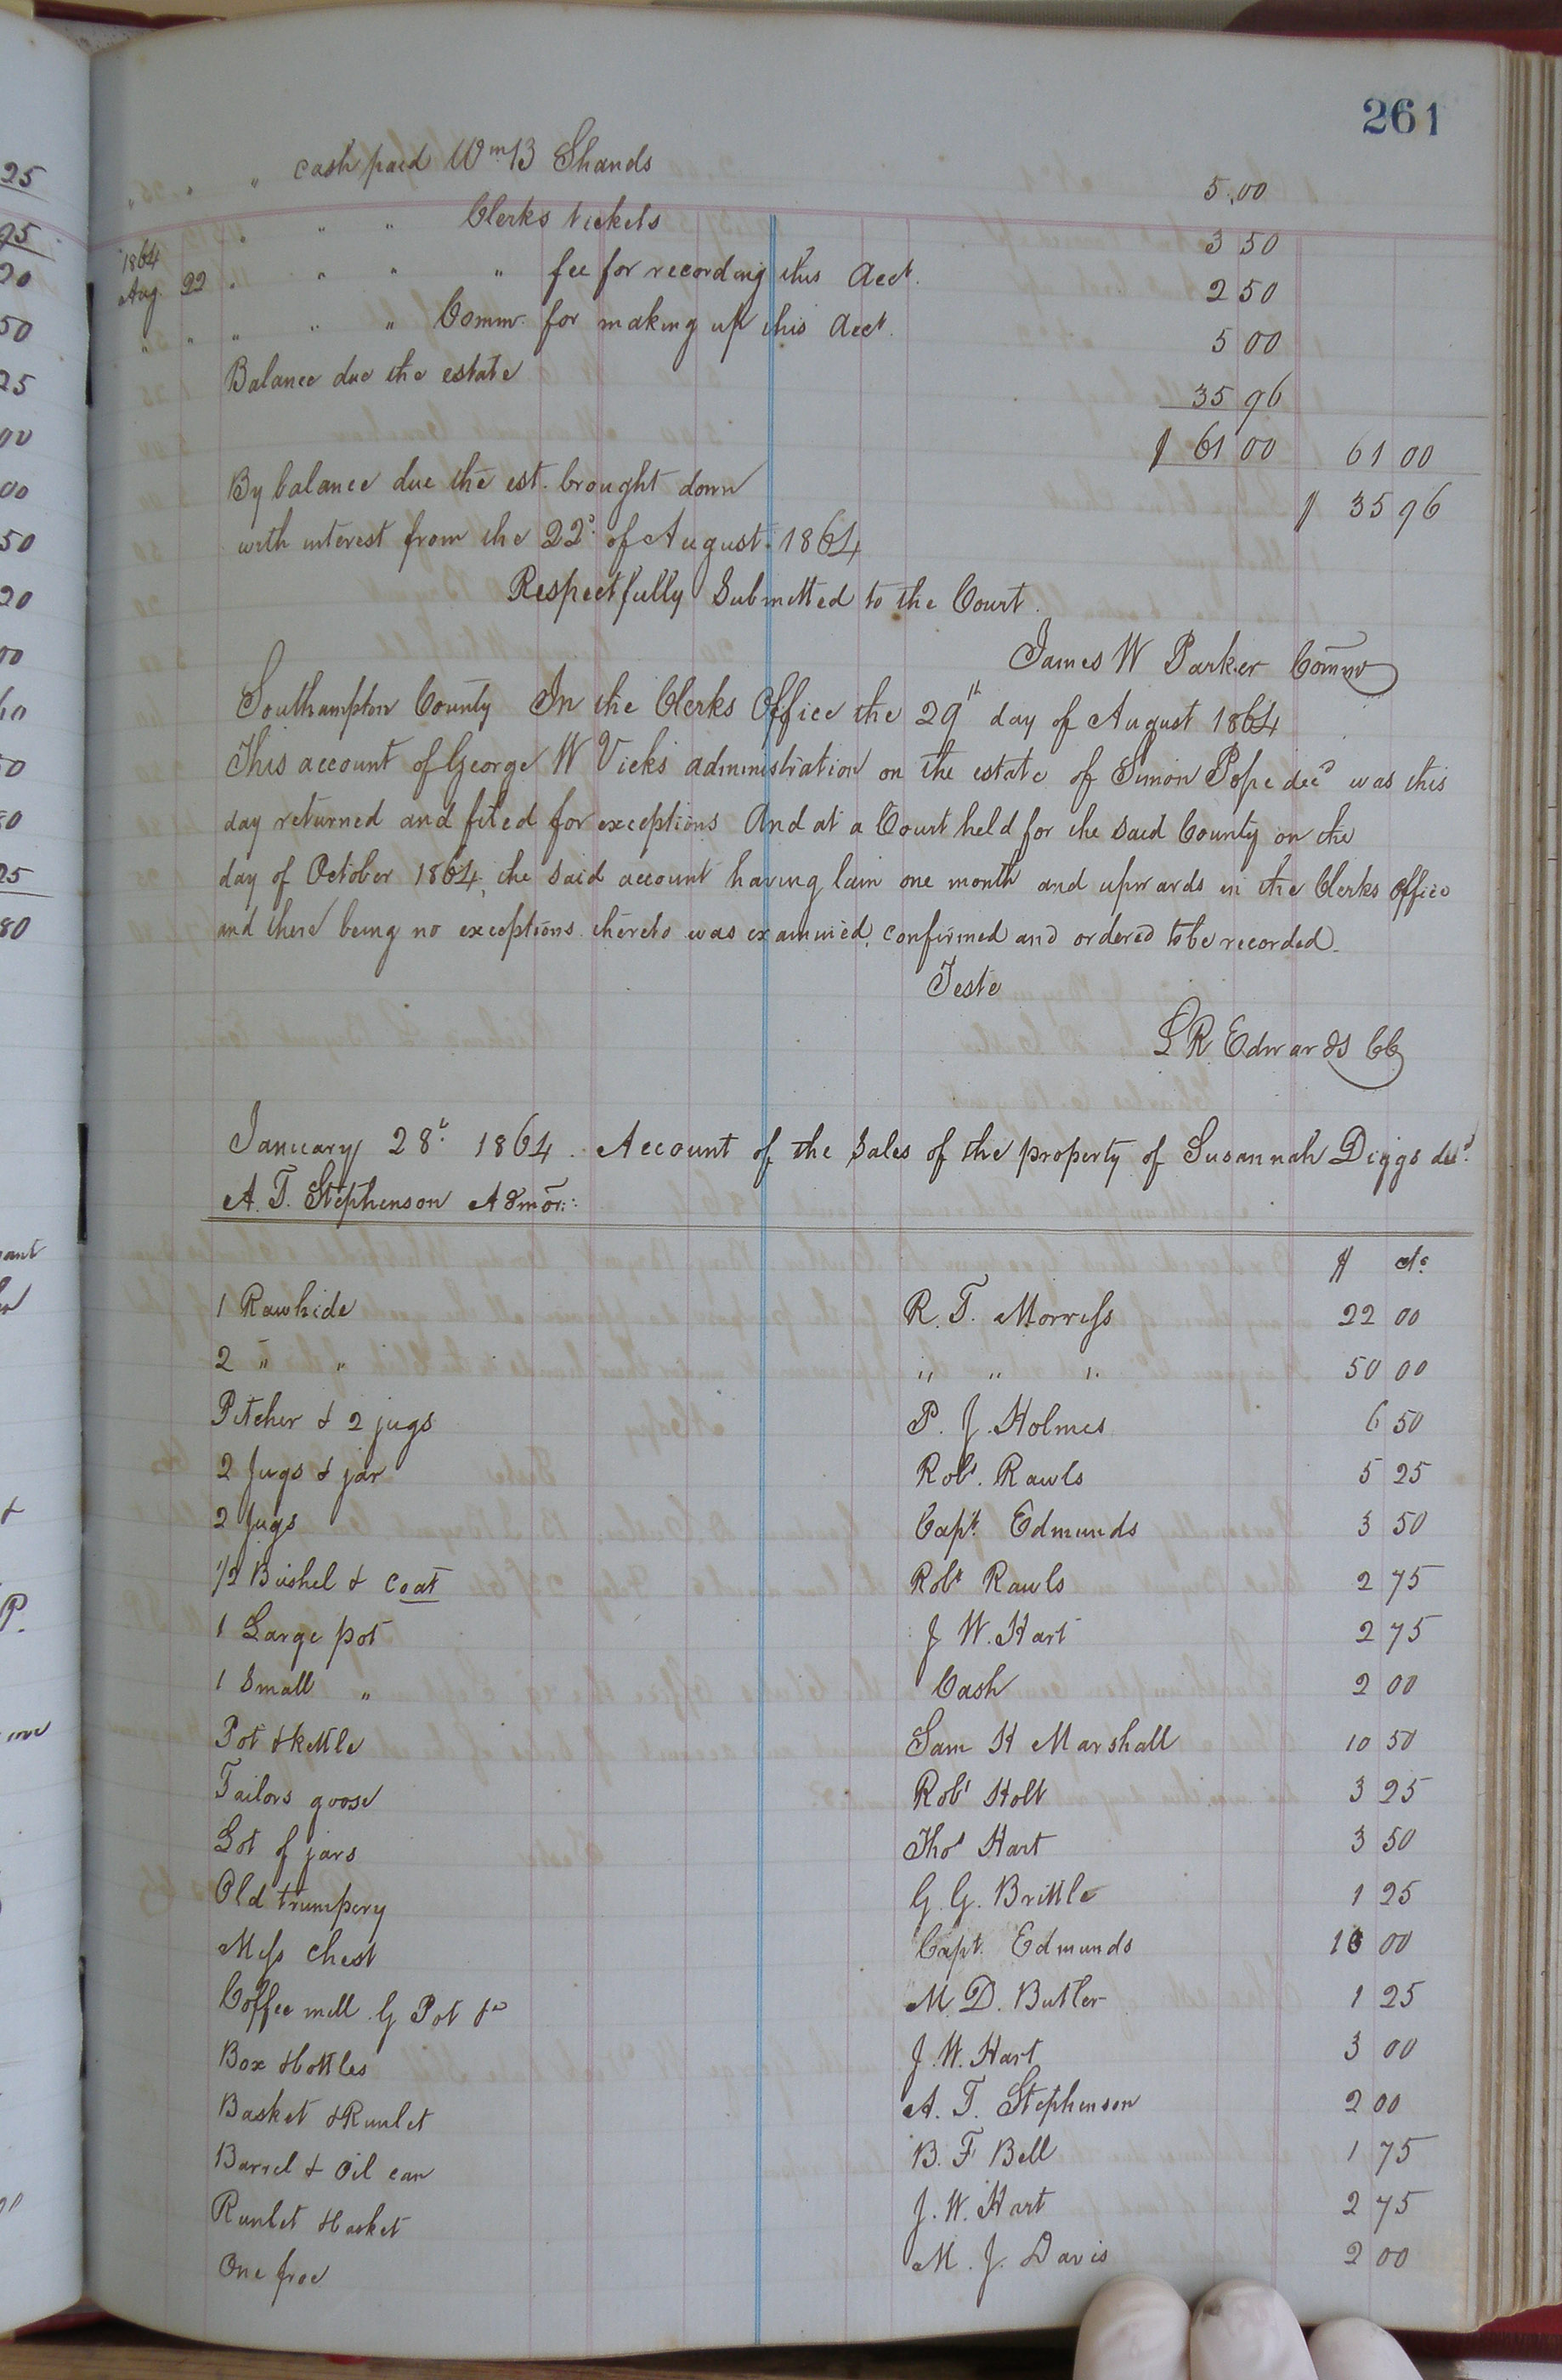 261
" cash paid Wm B Shands 5.00
" " " Clerks tickets 3 50
1864
Aug. 22 " " " " fee for recording this Acct. 2 50
" " " " " Comm. for making up this Acct. 5 00
Balance due the estate 35 96
$ 61 00 61 00
By balance due the est. brought down $ 35 96
with interest from the 22d. of August. 1864
Respectfully Submitted to the Court.
James W Parker Commr
Southampton County In the Clerks Office the 29th day of August 1864
This account of George W Vicks administration on the estate of Simon Pope decd was this
day returned and filed for exceptions And at a Court held for the said County on the
day of October 1864, the said account having lain one month and upwards in the Clerks Office
and there being no exceptions thereto was examined, confirmed and ordered to be recorded.
Teste
L R Edwards CC
January 28t. 1864. Account of the Sales of the property of Susannah Diggs decd.
A. T. Stephenson Admor.:
$ cts
1 Rawhide R. T. Morriss 22 00
2 " " " " " 50 00
Pitcher & 2 jugs P. J. Holmes 6 50
2 Jugs & jar Robt. Rawls 5 25
2 Jugs Capt. Edmunds 3 50
1/2 Bushel & coat Robt Rawls 2 75
1 Large pot J W. Hart 2 75
1 Small " Cash 2 00
Pot & kettle Sam H Marshall 10 50
Tailors goose Robt Holt 3 25
Lot of jars Thos Hart 3 50
Old trumpery G. G. Brittle 1 25
Mess chest Capt. Edmunds 00
Coffee mill G Pot M. D. Butler 1 25
Box & bottles J. W. Hart 3 00
Basket & Runlet A. T. Stephenson 2 00
Barrel & Oil can B. F. Bell 1 75
Runlet & basket J. W. Hart 2 75
One froe M. J. Davis 2 00